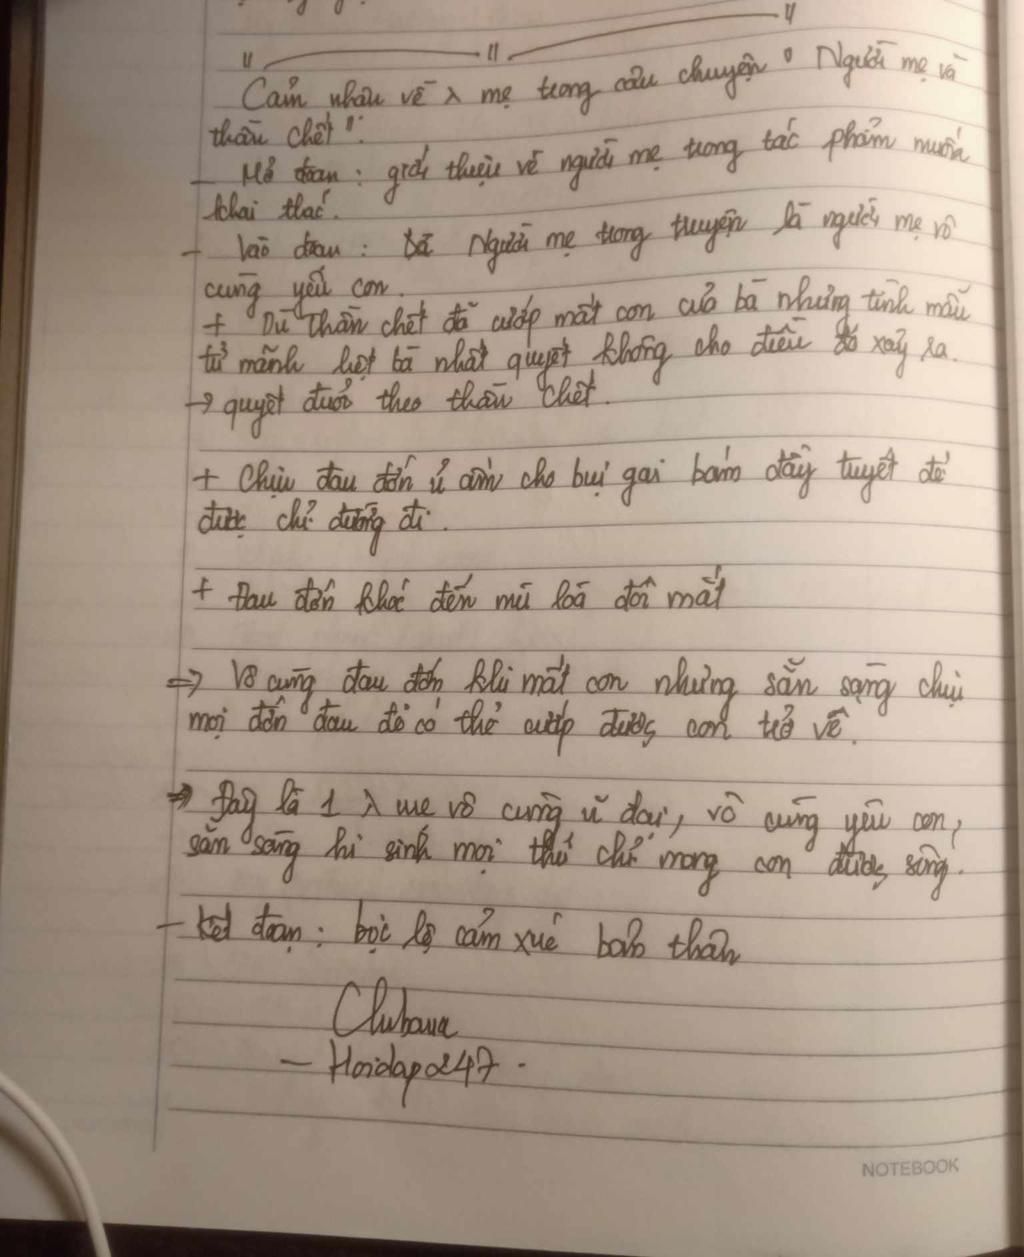 Cảm nhận về λ mẹ trong câu chuyện " Người mẹ và
thần chết":
- Mở đoạn : giới thiệu về người mẹ trong tác phẩm muốn
khai thác.
- Vào đoạn : Người mẹ trong truyện là người mẹ vô
cùng yêu con.
+ Dù thần chết đã cướp mất con của bà nhưng tình mẫu
tử mãnh liệt bà nhất quyết không cho điều đó xảy ra.
→ quyết đuổi theo thần chết.
+ Chịu đau đớn ủ ấm cho bụi gai bám đầy tuyết để
được chỉ đường đi.
+ Đau đớn khóc đến mù loà đôi mắt
⇒ Vô cùng đau đớn khi mất con nhưng sẵn sàng chịu
mọi đớn đau để có thể cướp được con trở về.
⇒ Đây là 1 λ mẹ vô cùng vĩ đại, vô cùng yêu con,
sẵn sàng hi sinh mọi thứ chỉ mong con được sống.
- Kết đoạn : bộc lộ cảm xúc bản thân
- Hoidap247.
NOTEBOOK